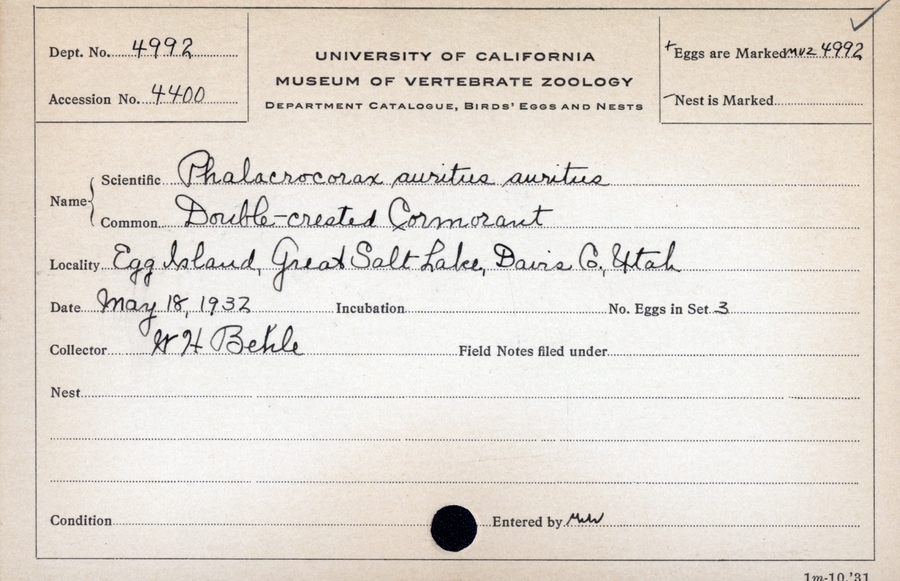 Dept. No. 4992
Accession No. 4400
UNIVERSITY OF CALIFORNIA
MUSEUM OF VERTEBRATE ZOOLOGY
DEPARTMENT CATALOGUE, BIRDS' EGGS AND NESTS
+Eggs are Marked MVZ 4992
-Nest is Marked
Name Scientific Phalacrocorax auritus auritus
Common Double-crested Cormorant
Locality Egg Island, Great Salt Lake, Davis Co., Utah
Date May 18, 1932 Incubation No. Eggs in Set 3
Collector W H Behle Field Notes filed under
Nest
Condition Entered by
1m-10,'31